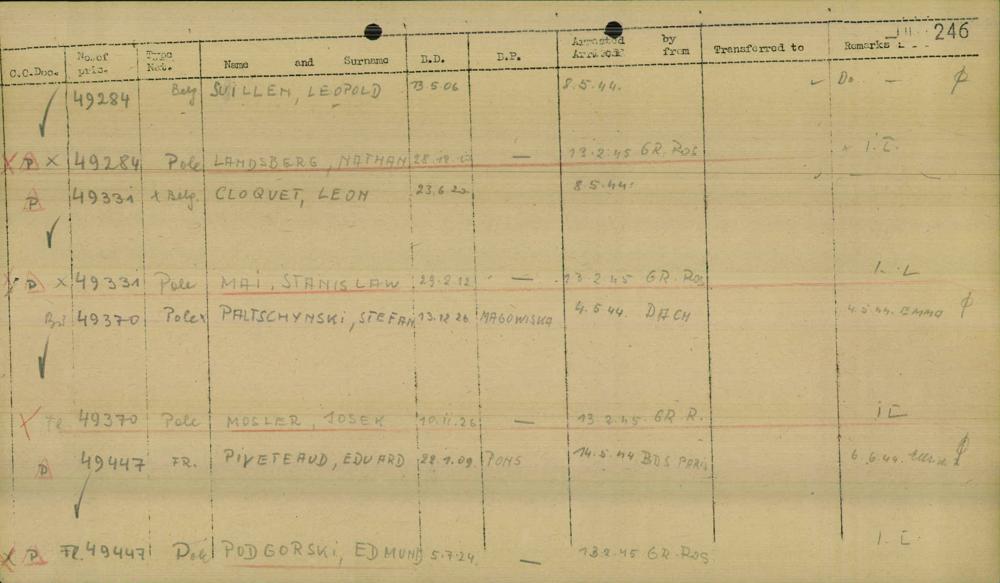 246
C.C.Doc. No.of pris. Type Nat. Name and Surname D.D. D.P. Arrested by Arrived from Transferred to Remarks
49284 Belg LEOPOLD 13.5.06 8.5.44. Do —
X P X 49284 Pole LANDSBERG, NATHAN — 13.2.45 GR.ROS
P 49331 X Belg. CLOQUET, LEON 23.6.20 8.5.44.
P X 49331 Pole MAI, STANISLAW 29.2.12 — 13.2.45 GR.ROS
49370 Pole PALTSCHYNSKI, STEFAN 13.12.26 MAGOWISKA 4.5.44. DACH 4.5.44. EMMA
X 49370 Pole MOSLER, JOSEK 10.11.26 — 13.2.45. GR R.
P 49447 FR. PIVETEAUD, EDUARD 22.1.09 PONS 14.5.44 BDS PARIS 6.6.44.
X P 49447 Pole PODGORSKI, EDMUND 5.7.24 — 13.2.45 GR.ROS